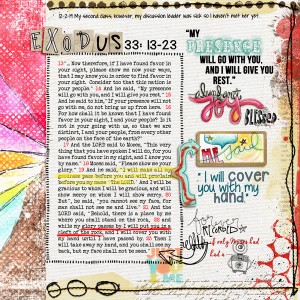 12-2-19 My second class, however, my discussion leader was sick so I haven't met her yet.
EXODUS 33: 13-23
13" Now therefore, if I have found favor in
your sight, please show me now your ways,
that I may know you in order to find favor in
your sight. Consider too that this nation is
your people." 14 And he said, "My presence
will go with you, and I will give you rest."
And he said to him, "If your presence will not
go with me, do not bring us up from here. 16
For how shall it be known that I have found
favor in your sight, I and your people? Is it
not in your going with us, so that we are
distinct, I and your people, from every other
people on the face of the earth?
17 And the LORD said to Moses, "This very
thing that you have spoken I will do, for you
have found favor in my sight, and I know you
by name." Moses said, "Please show me your
glory." 19 And he said, "I will make all my
goodness pass before you and will proclaim
before you my name 'The LORD.' And I will be
gracious to whom I will be gracious, and will
show mercy on whom I will show mercy. 20
But", he said, "you cannot see my face, for
man shall not see me and live." 21 And the
LORD said, "Behold, there is a place by me
where you shall stand on the rock, 22 and
while my glory passes by I will put you in a
cleft of the rock, and I will cover you with
my hand until I have passed by. 23 Then I
will take away my hand, and you shall see my
back, but my face shall not be seen."
"MY
PRESENCE
WILL GO WITH YOU,
AND I WILL GIVE YOU
REST."
BLESSED
ME
"I will cover
you with my
hand"
if only Moses had
had a